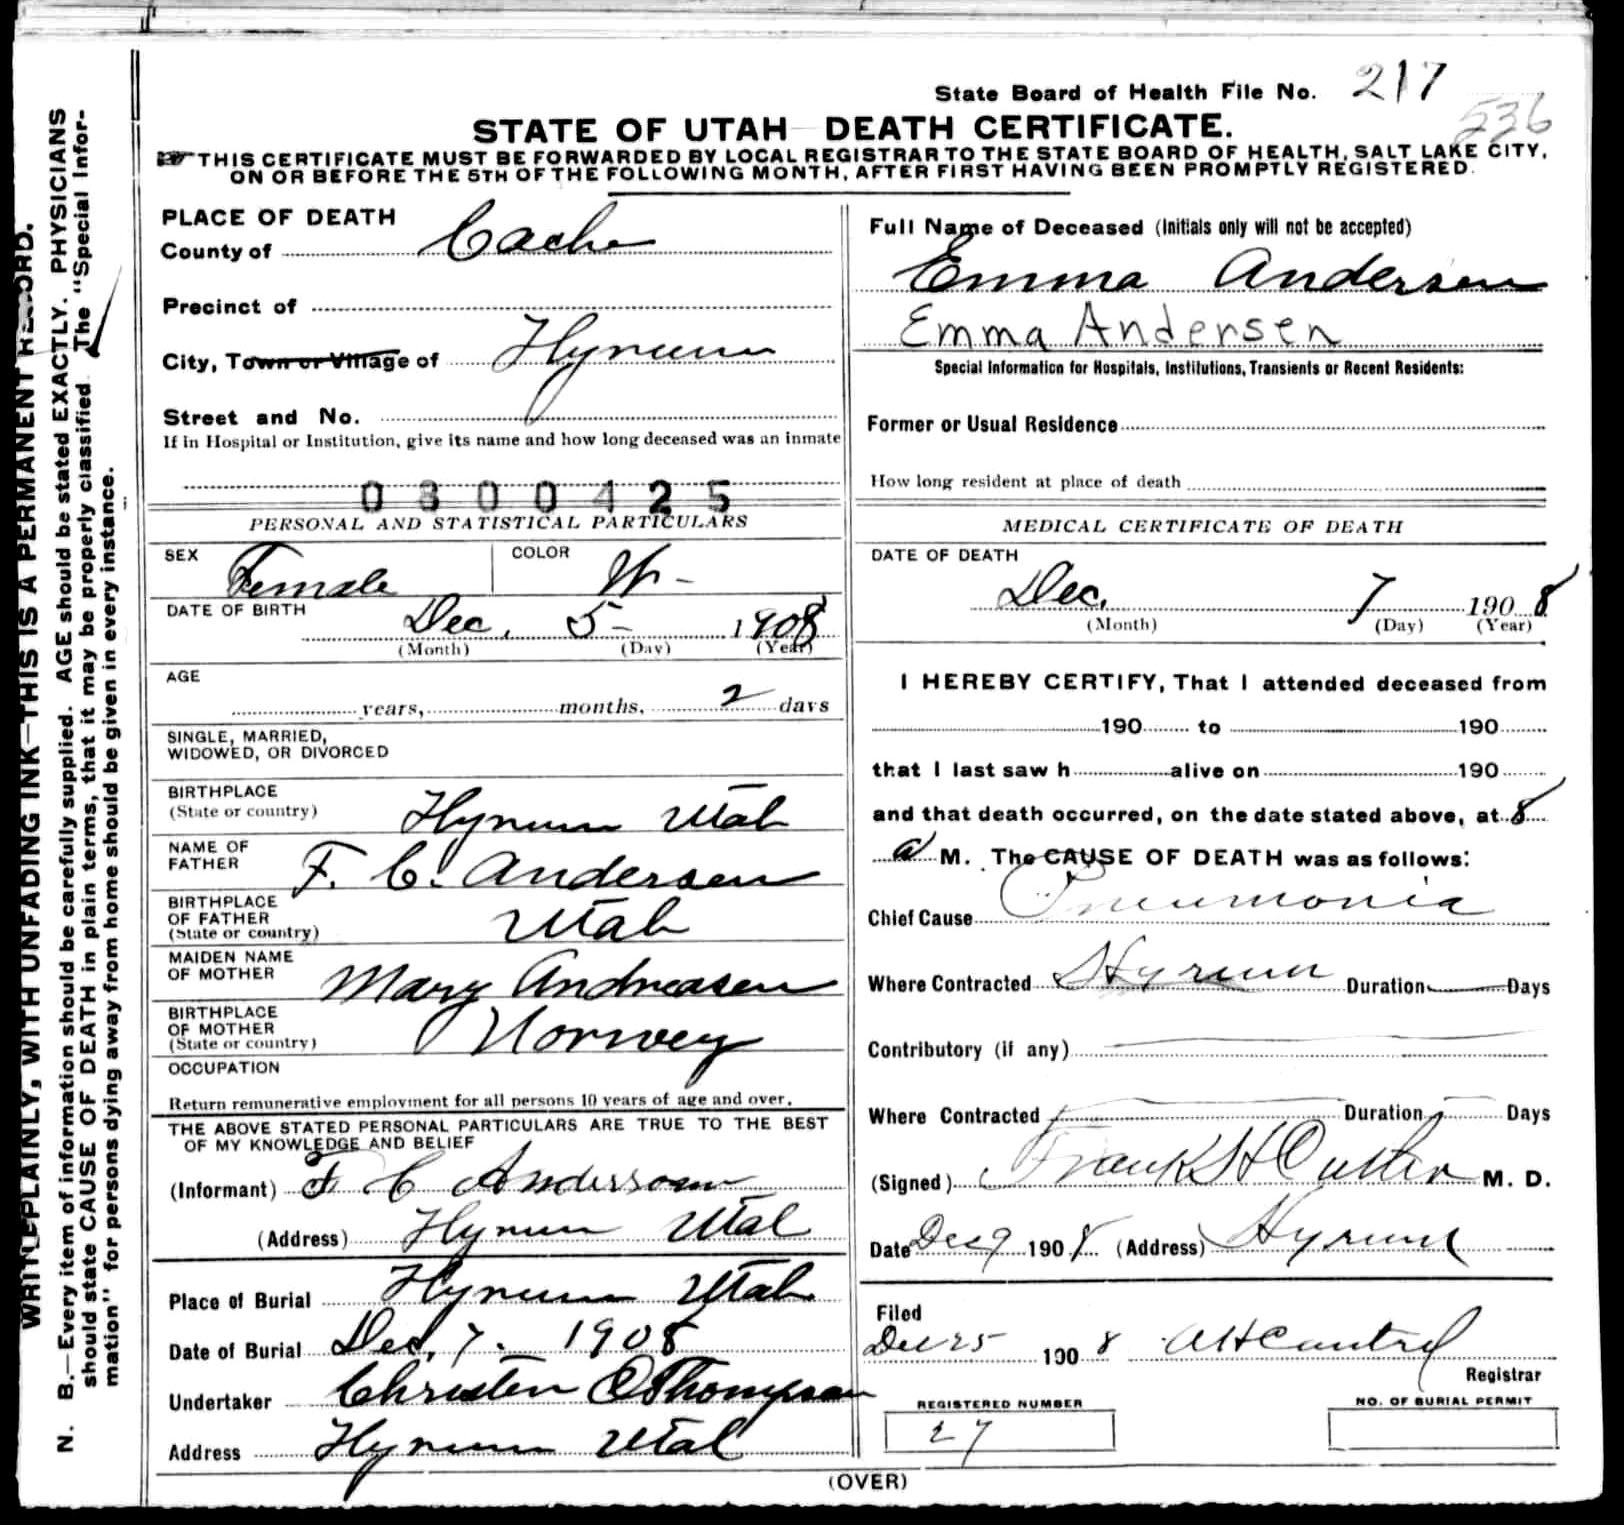 State Board of Health File No. 217
536
STATE OF UTAH—DEATH CERTIFICATE.
THIS CERTIFICATE MUST BE FORWARDED BY LOCAL REGISTRAR TO THE STATE BOARD OF HEALTH, SALT LAKE CITY,
ON OR BEFORE THE 5TH OF THE FOLLOWING MONTH, AFTER FIRST HAVING BEEN PROMPTLY REGISTERED.
WRITE PLAINLY, WITH UNFADING INK—THIS IS A PERMANENT RECORD.
N. B.—Every item of information should be carefully supplied. AGE should be stated EXACTLY. PHYSICIANS
should state CAUSE OF DEATH in plain terms, that it may be properly classified. The "Special Infor-
mation" for persons dying away from home should be given in every instance.
PLACE OF DEATH
County of Cache
Precinct of
City, Town or Village of Hyrum
Street and No.
If in Hospital or Institution, give its name and how long deceased was an inmate
0300425
PERSONAL AND STATISTICAL PARTICULARS
SEX Female COLOR W-
DATE OF BIRTH
Dec. 5- 1908
(Month) (Day) (Year)
AGE
years, months, 2 days
SINGLE, MARRIED,
WIDOWED, OR DIVORCED
BIRTHPLACE
(State or country) Hyrum Utah
NAME OF
FATHER F. C. Andersen
BIRTHPLACE
OF FATHER
(State or country) Utah
MAIDEN NAME
OF MOTHER Mary Andreasen
BIRTHPLACE
OF MOTHER
(State or country) Norwey
OCCUPATION
Return remunerative employment for all persons 10 years of age and over.
THE ABOVE STATED PERSONAL PARTICULARS ARE TRUE TO THE BEST
OF MY KNOWLEDGE AND BELIEF
(Informant) F C Anderson
(Address) Hyrum Utah
Place of Burial Hyrum Utah
Date of Burial Dec. 7. 1908
Undertaker Christen O Thompson
Address Hyrum Utah
Full Name of Deceased (Initials only will not be accepted)
Emma Andersen
Emma Andersen
Special Information for Hospitals, Institutions, Transients or Recent Residents:
Former or Usual Residence
How long resident at place of death
MEDICAL CERTIFICATE OF DEATH
DATE OF DEATH
Dec. 7 1908
(Month) (Day) (Year)
I HEREBY CERTIFY, That I attended deceased from
190 to 190
that I last saw h alive on 190
and that death occurred, on the date stated above, at 8
a M. The CAUSE OF DEATH was as follows:
Chief Cause Pneumonia
Where Contracted Hyrum Duration — Days
Contributory (if any)
Where Contracted Duration Days
(Signed) Frank H Cutler M. D.
Date Dec 9 1908 (Address) Hyrum
Filed
Dec 25 1908
Registrar
REGISTERED NUMBER
27
NO. OF BURIAL PERMIT
(OVER)